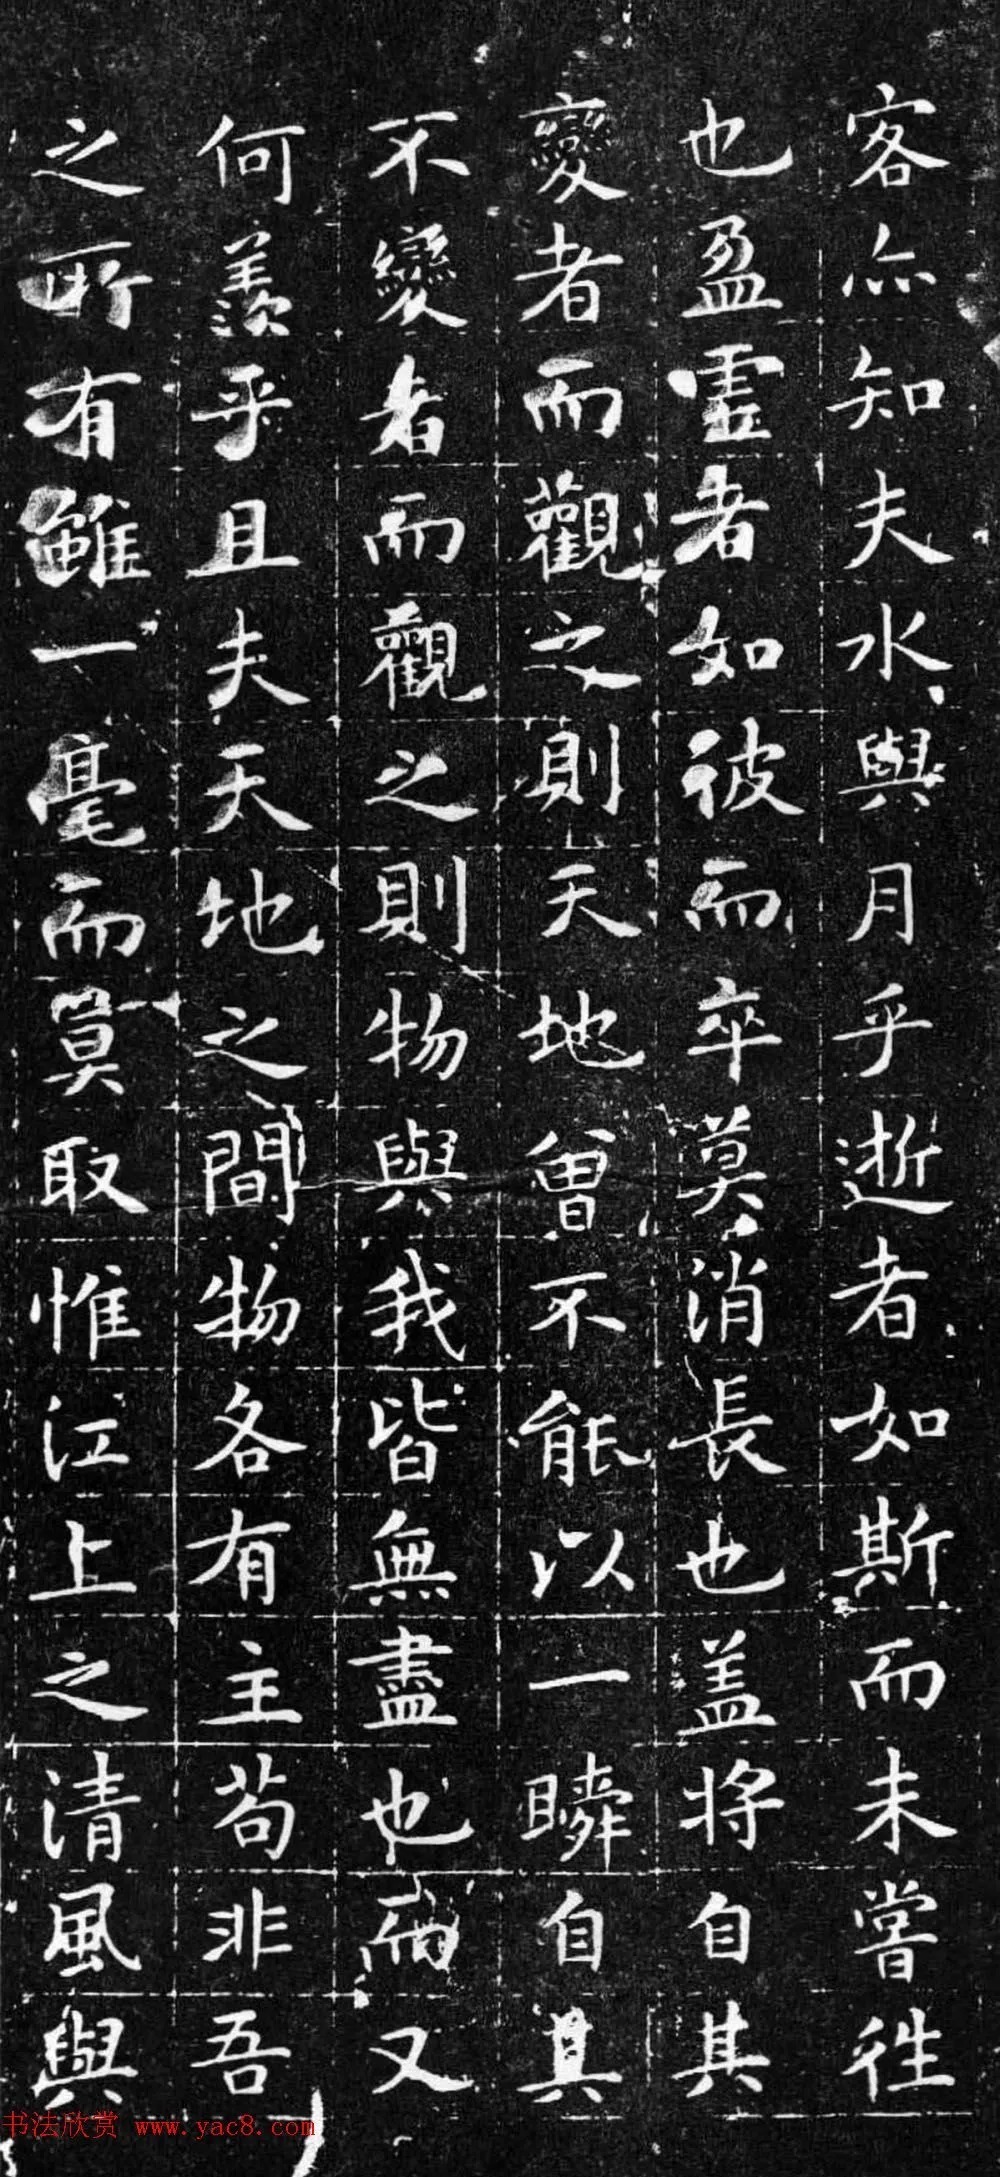 客亦知夫水與月乎逝者如斯而未嘗往
也盈虛者如彼而卒莫消長也盖將自其
變者而觀之則天地曾不能以一瞬自其
不變者而觀之則物與我皆無盡也而又
何羨乎且夫天地之間物各有主苟非吾
之所有雖一毫而莫取惟江上之清風與
书法欣赏 www.yac8.com